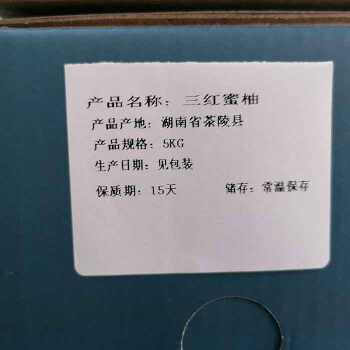 产品名称：三红蜜柚
产品产地：湖南省茶陵县
产品规格：5KG
生产日期：见包装
保质期：15天 储存：常温保存